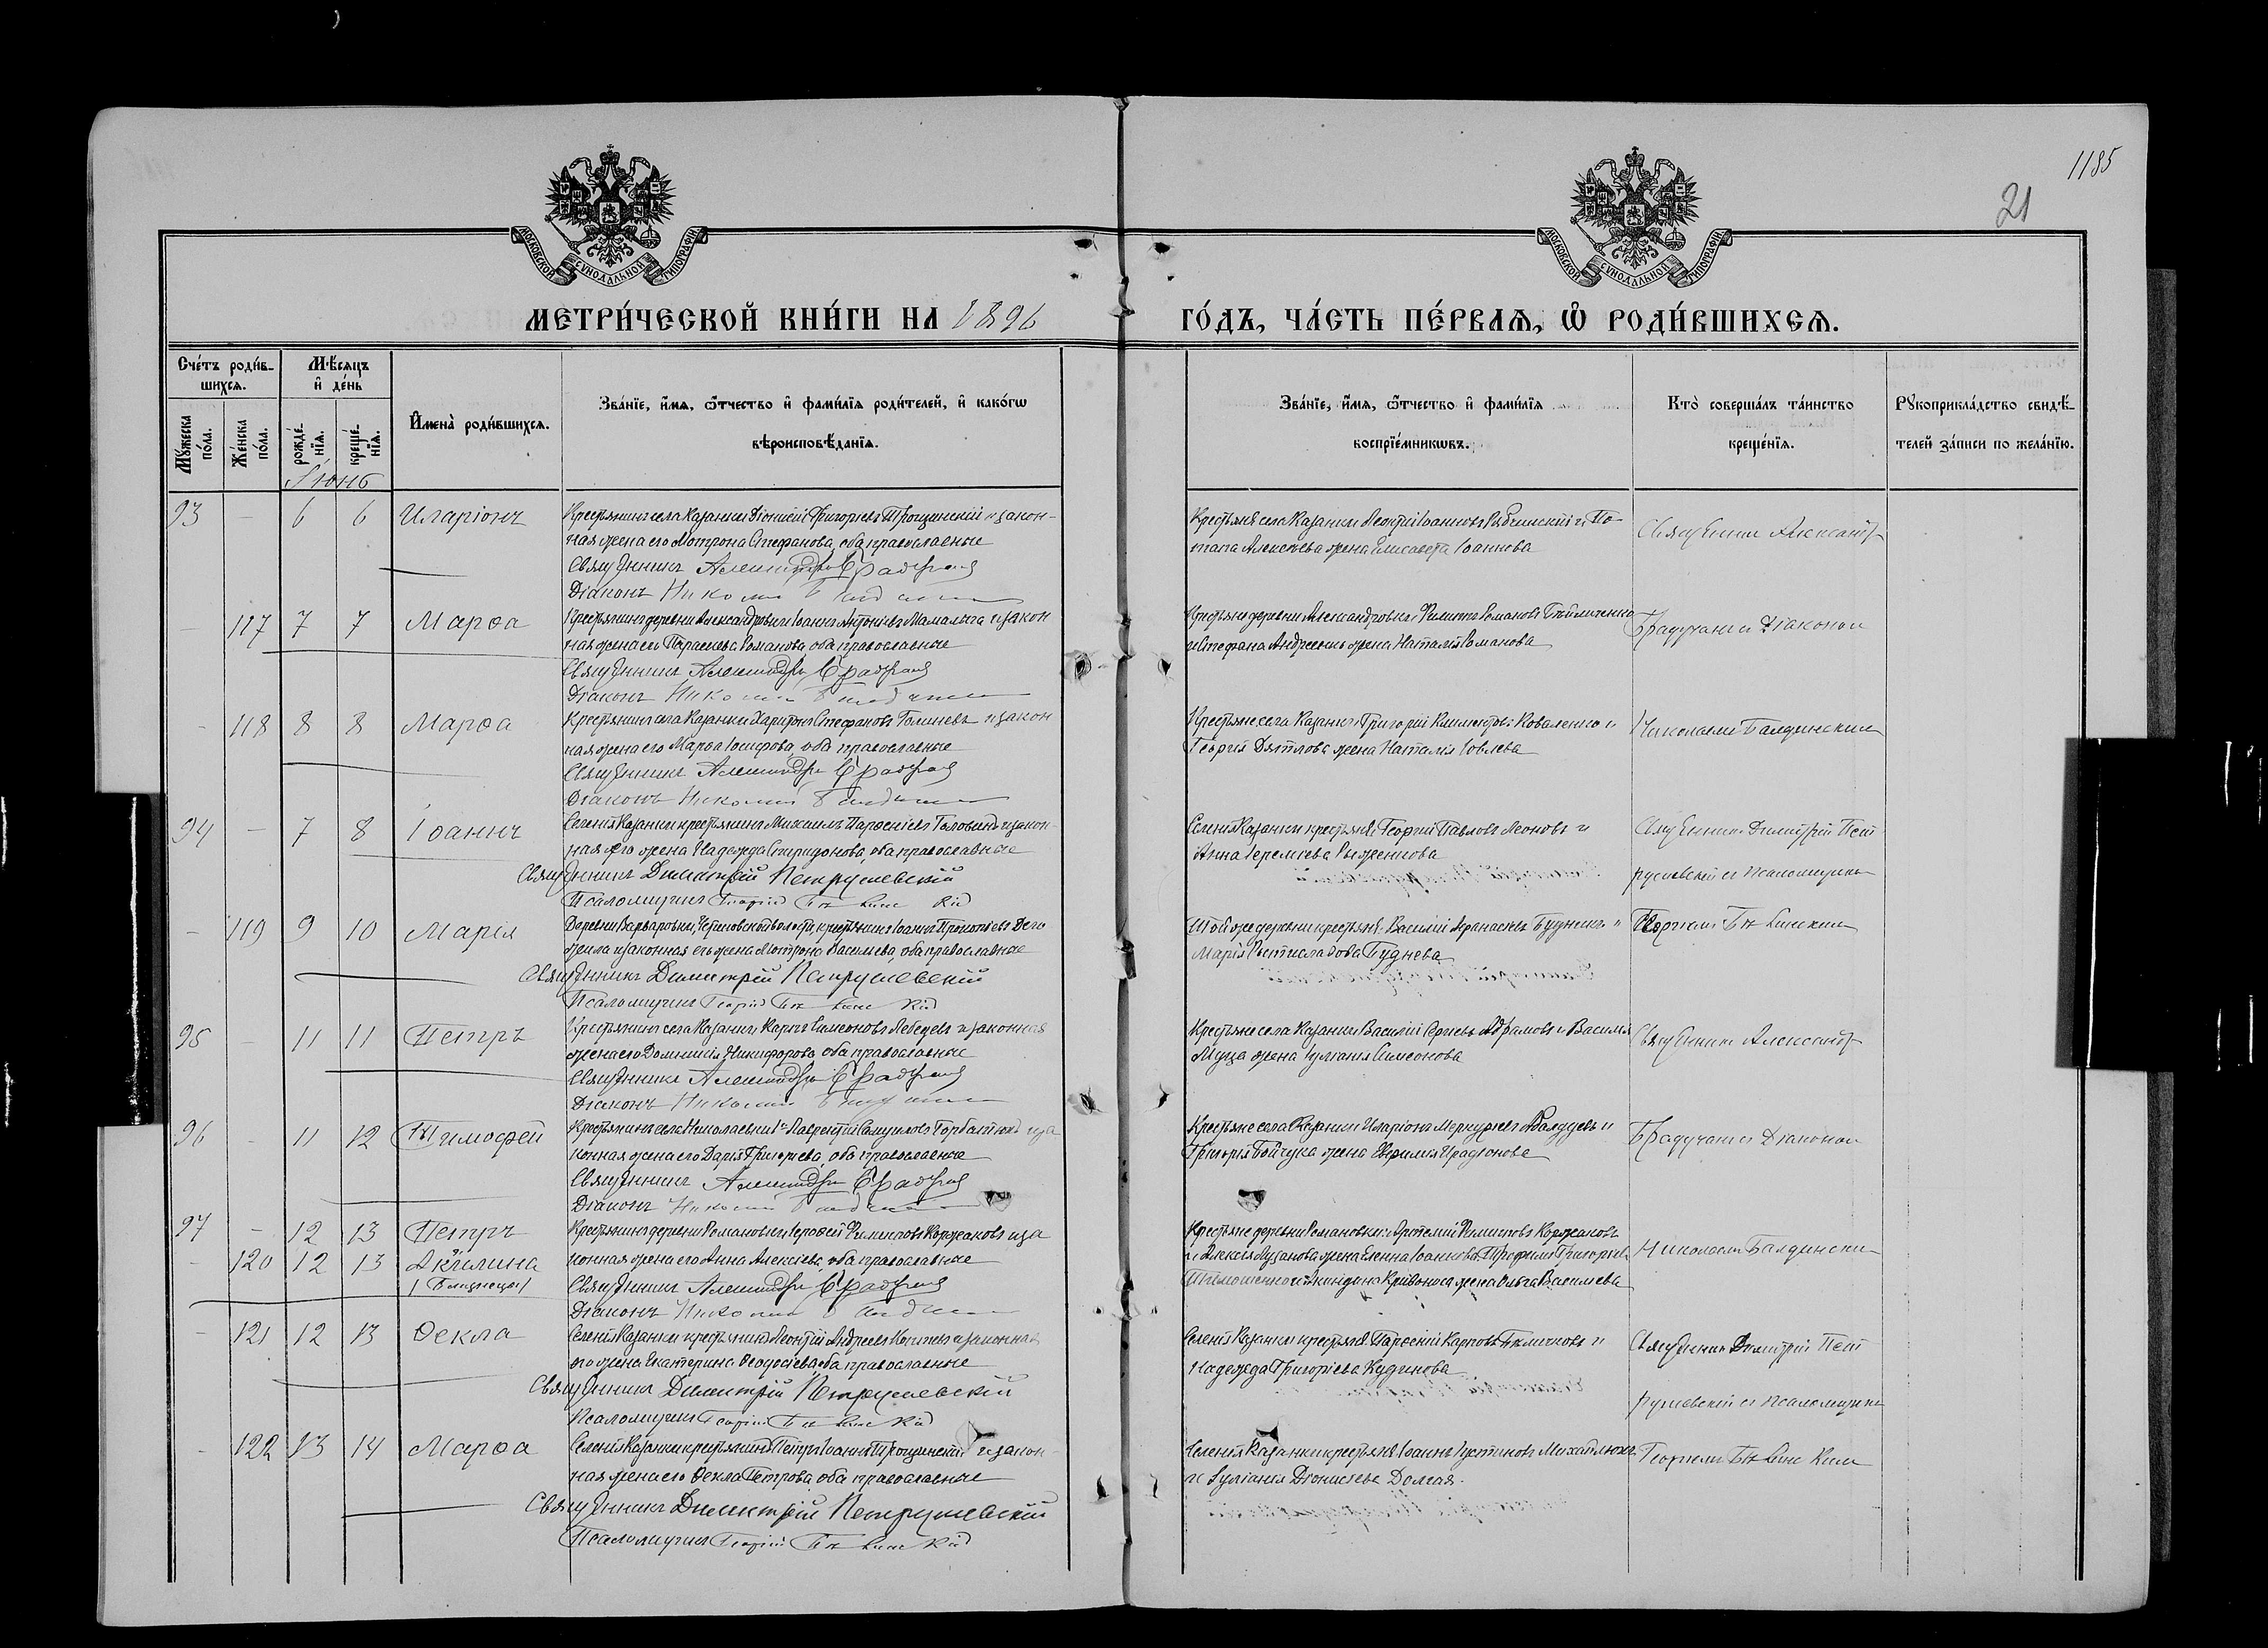 1185
21
МОСКОВСКОЙ СѴНОДАЛЬНОЙ ТИПОГРАФІИ
МОСКОВСКОЙ СѴНОДАЛЬНОЙ ТИПОГРАФІИ
МЕТРИ́ЧЕСКОЙ КНИ́ГИ НА 1896 ГО́ДЪ, ЧА́СТЬ ПЕ́РВАѦ, Ѡ РОДИ́ВШИХСѦ.
Сче́тъ роди́в-
шихсѧ.
Мꙋ́жеска по́ла.
Же́нска по́ла.
Мѣ́сѧцъ
и҆ де́нь
рожде́-
нїѧ.
креще́-
нїѧ.
И҆мена̀ роди́вшихсѧ.
Зва́нїе, и҆́мѧ, ѻ҆́тчество и҆ фами́лїѧ роди́телей, и҆ како́гѡ
вѣроисповѣ́данїѧ.
Зва́нїе, и҆́мѧ, ѻ҆́тчество и҆ фами́лїѧ
воспрїе́мникѡвъ.
Кто̀ соверша́лъ та́инство
креще́нїѧ.
Рꙋкоприкла́дство свидѣ́-
телей за́писи по жела́нїю.
Іюнь
93 - 6 6 Иларіонъ
Крестьянинъ села Казанки Діонисій Григорьевъ Трощинскій и закон-
ная жена его Мотрона Стефанова, оба православные
Священникъ Александръ
Діаконъ Николай
Крестьяне села Казанки Леонтій Іоанновъ и По-
тапа Алексѣева жена Елисавета Іоаннова
Священникъ Александръ
- 117 7 7 Марѳа
Крестьянинъ деревни Александровки Іоаннъ Антоніевъ Мамалыга и закон
ная жена его Параскева Романова, оба православные
Священникъ Александръ
Діаконъ Николай
Крестьяне деревни Александровки Филиппъ Романовъ
и Стефана Андреенко жена Наталія Романова
съ Діакономъ
- 118 8 8 Марѳа
Крестьянинъ села Казанки Харитонъ Стефановъ и закон
ная жена его Марѳа Іосифова, оба православные
Священникъ Александръ
Діаконъ Николай
Крестьяне села Казанки Григорій Климентовъ Коваленко и
Георгія Дятлова жена Наталія Іовлева
Николаемъ
94 - 7 8 Іоаннъ
Селенія Казанки крестьянинъ Михаилъ Парѳеніевъ Головинъ и закон-
ная его жена Надежда Спиридонова, оба православные
Священникъ Димитрій Петрушевскій
Псаломщикъ Георгій
Селенія Казанки крестьяне Георгій Павловъ Леоновъ и
Анна Іереміева
Священникъ Димитрій Пет
рушевскій съ псаломщикомъ
- 119 9 10 Марія
Деревни Варваровки, волости, крестьянинъ Іоаннъ Прокопіевъ
и законная его жена Мотрона Васильева, оба православные
Священникъ Димитрій Петрушевскій
Псаломщикъ Георгій
Той же деревни крестьяне Василій Аѳанасіевъ и
Марія Ростиславова Буднева
Георгіемъ
95 - 11 11 Петръ
Крестьянинъ села Казанки Карпъ Симеоновъ Лебедевъ и законная
жена его Домникія Никифорова, оба православные
Священникъ Александръ
Діаконъ Николай
Крестьяне села Казанки Василій Абрамовъ и Василія
Муца жена Іуліанія Симеонова
Священникъ Александръ
96 - 11 12 Тимоѳей
Крестьянинъ села Николаевки 1й Лаврентій Самуиловъ и за
конная жена его Дарія Григорьева, оба православные
Священникъ Александръ
Діаконъ Николай
Крестьяне села Казанки Иларіонъ Меркурьевъ и
Григорія Бойчука жена Евфимія
съ Діакономъ
97 - 12 13 Петръ
- 120 12 13 Акилина
(Близнецы)
Крестьянинъ деревни Романовки Іероѳей Филипповъ Коржаковъ и за
конная жена его Анна Алексіева, оба православные
Священникъ Александръ
Діаконъ Николай
Крестьяне деревни Романовки: Артемій Филипповъ Коржаковъ
и Алексія жена Елена Іоаннова, Трофимъ Григорьевъ
Тимошенко и Акиндина Кривоноса жена Ольга Васильева
Николаемъ
- 121 12 13 Ѳекла
Селенія Казанки крестьянинъ Леонтій Андреевъ и законная
его жена Екатерина Ѳеодосіева, оба православные
Священникъ Димитрій Петрушевскій
Псаломщикъ Георгій
Селенія Казанки крестьяне Парѳеній Карповъ и
Надежда Григорьева Кудинова
Священникъ Димитрій Пет
рушевскій съ псаломщикомъ
- 122 13 14 Марѳа
Селенія Казанки крестьянинъ Петръ Іоанновъ Трощинскій и закон-
ная жена его Ѳекла Петрова, оба православные
Священникъ Димитрій Петрушевскій
Псаломщикъ Георгій
Селенія Казанки крестьяне Іоаннъ Іустиновъ Михайлюкъ
и Іуліанія Діонисіева Долгая.
Георгіемъ